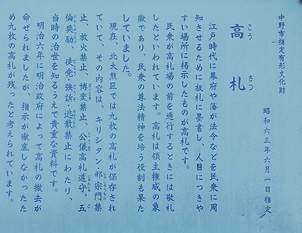 中野市指定有形文化財
高札
こう さつ
昭和六三年六月一日指定
江戸時代に幕府や藩が法令などを民衆に周
知させるために板札に墨書し、人目につきや
すい場所に掲示したものが高札です。
民衆が高札場の前を通行するときには敬礼
したといわれています。高札は領主権威の象
徴であり、民衆の遵法精神を培う役割も果た
していました。
現在、北大熊区では九枚の高札が保存され
ていて、その内容は、キリシタン邪宗門禁
止、放火禁止、博変禁止、公儀高札遵守、五
倫奨励、徒党・強訴・逃散禁止にわたり、
当時の治世を知るうえで貴重な資料です。
明治六年に明治政府によって高札の撤去が
命ぜられましたが、指示が徹底しなかったた
め九枚の高札が残ったと考えられています。